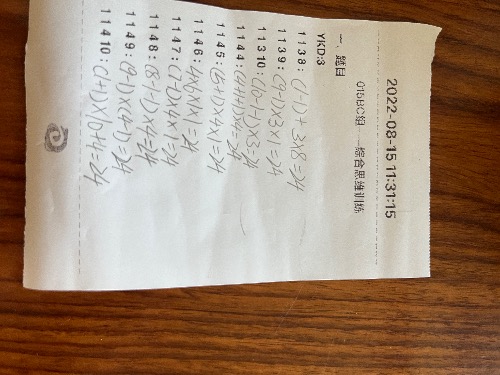 2022-08-15 11:31:15
015BC组 综合思维训练
一、题目
YKD:3
1138: (1-1)+3×8=24
1139: (9-1)×3×1=24
11310: (10-1-1)×3=24
1144: (4+1+1)×4=24
1145: (5+1)×4×1=24
1146: 4×6×1×1=24
1147: (7-1)×4×1=24
1148: (8-1-1)×4=24
1149: (9-1)×(4-1)=24
11410: (1+1)×10+4=24